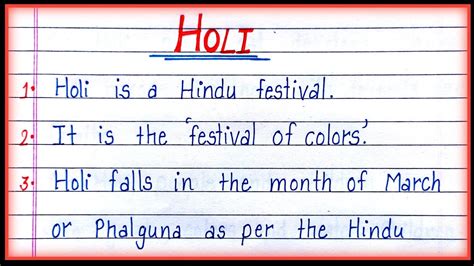 HOLI
1. Holi is a Hindu festival.
2. It is the 'festival of colors'.
3. Holi falls in the month of March
or Phalguna as per the Hindu